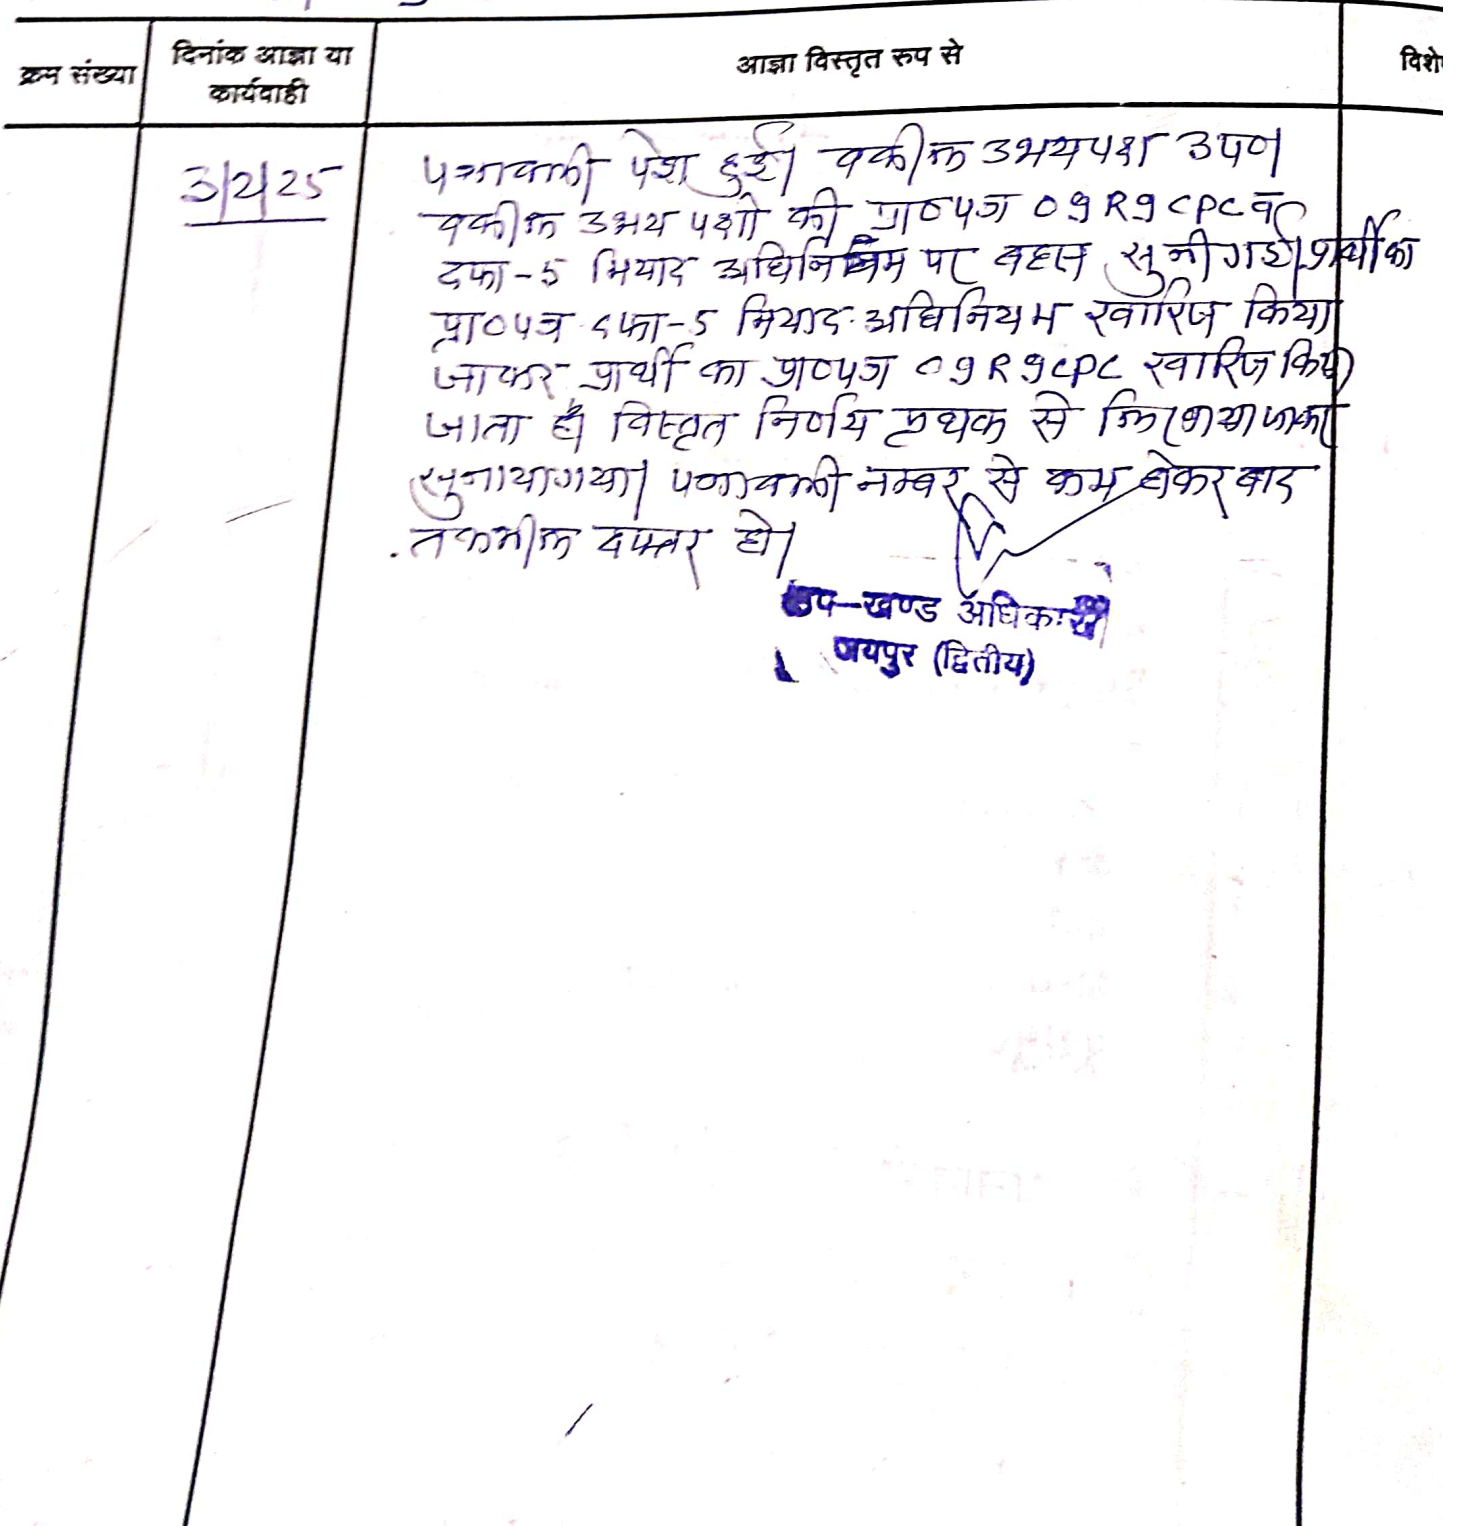 क्रम संख्या
दिनांक आज्ञा या
कार्यवाही
आज्ञा विस्तृत रुप से
विशे
3/2/25
पत्रावली पेश हुई। वकील उभयपक्ष उप०।
वकील उभय पक्षो की प्रा०पत्र O9R9CPC व
दफा-5 मियाद अधिनियम पर बहस सुनी गई। प्रार्थी का
प्रा०पत्र दफा-5 मियाद अधिनियम खारिज किया
जाकर प्रार्थी का प्रा०पत्र O9R9CPC खारिज किया
जाता है। विस्तृत निर्णय पृथक से लिखाया जाकर
सुनाया गया। पत्रावली नम्बर से कम होकर बाद
तकमील दफ्तर हो।
उप-खण्ड अधिकारी
जयपुर (द्वितीय)